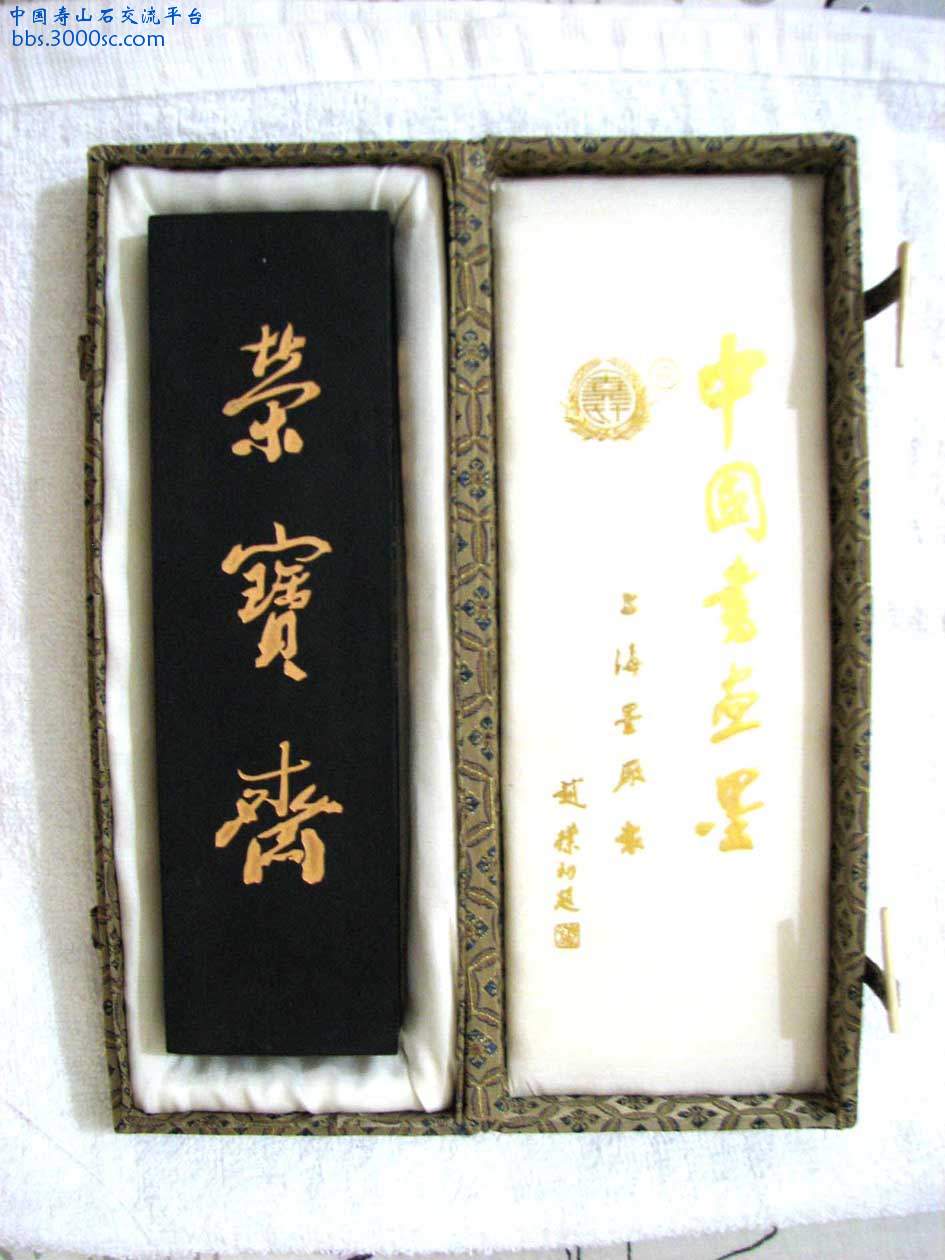 中国寿山石交流平台
bbs.3000sc.com
榮寶齋
中国书画墨
上海墨厰制
趙樸初題